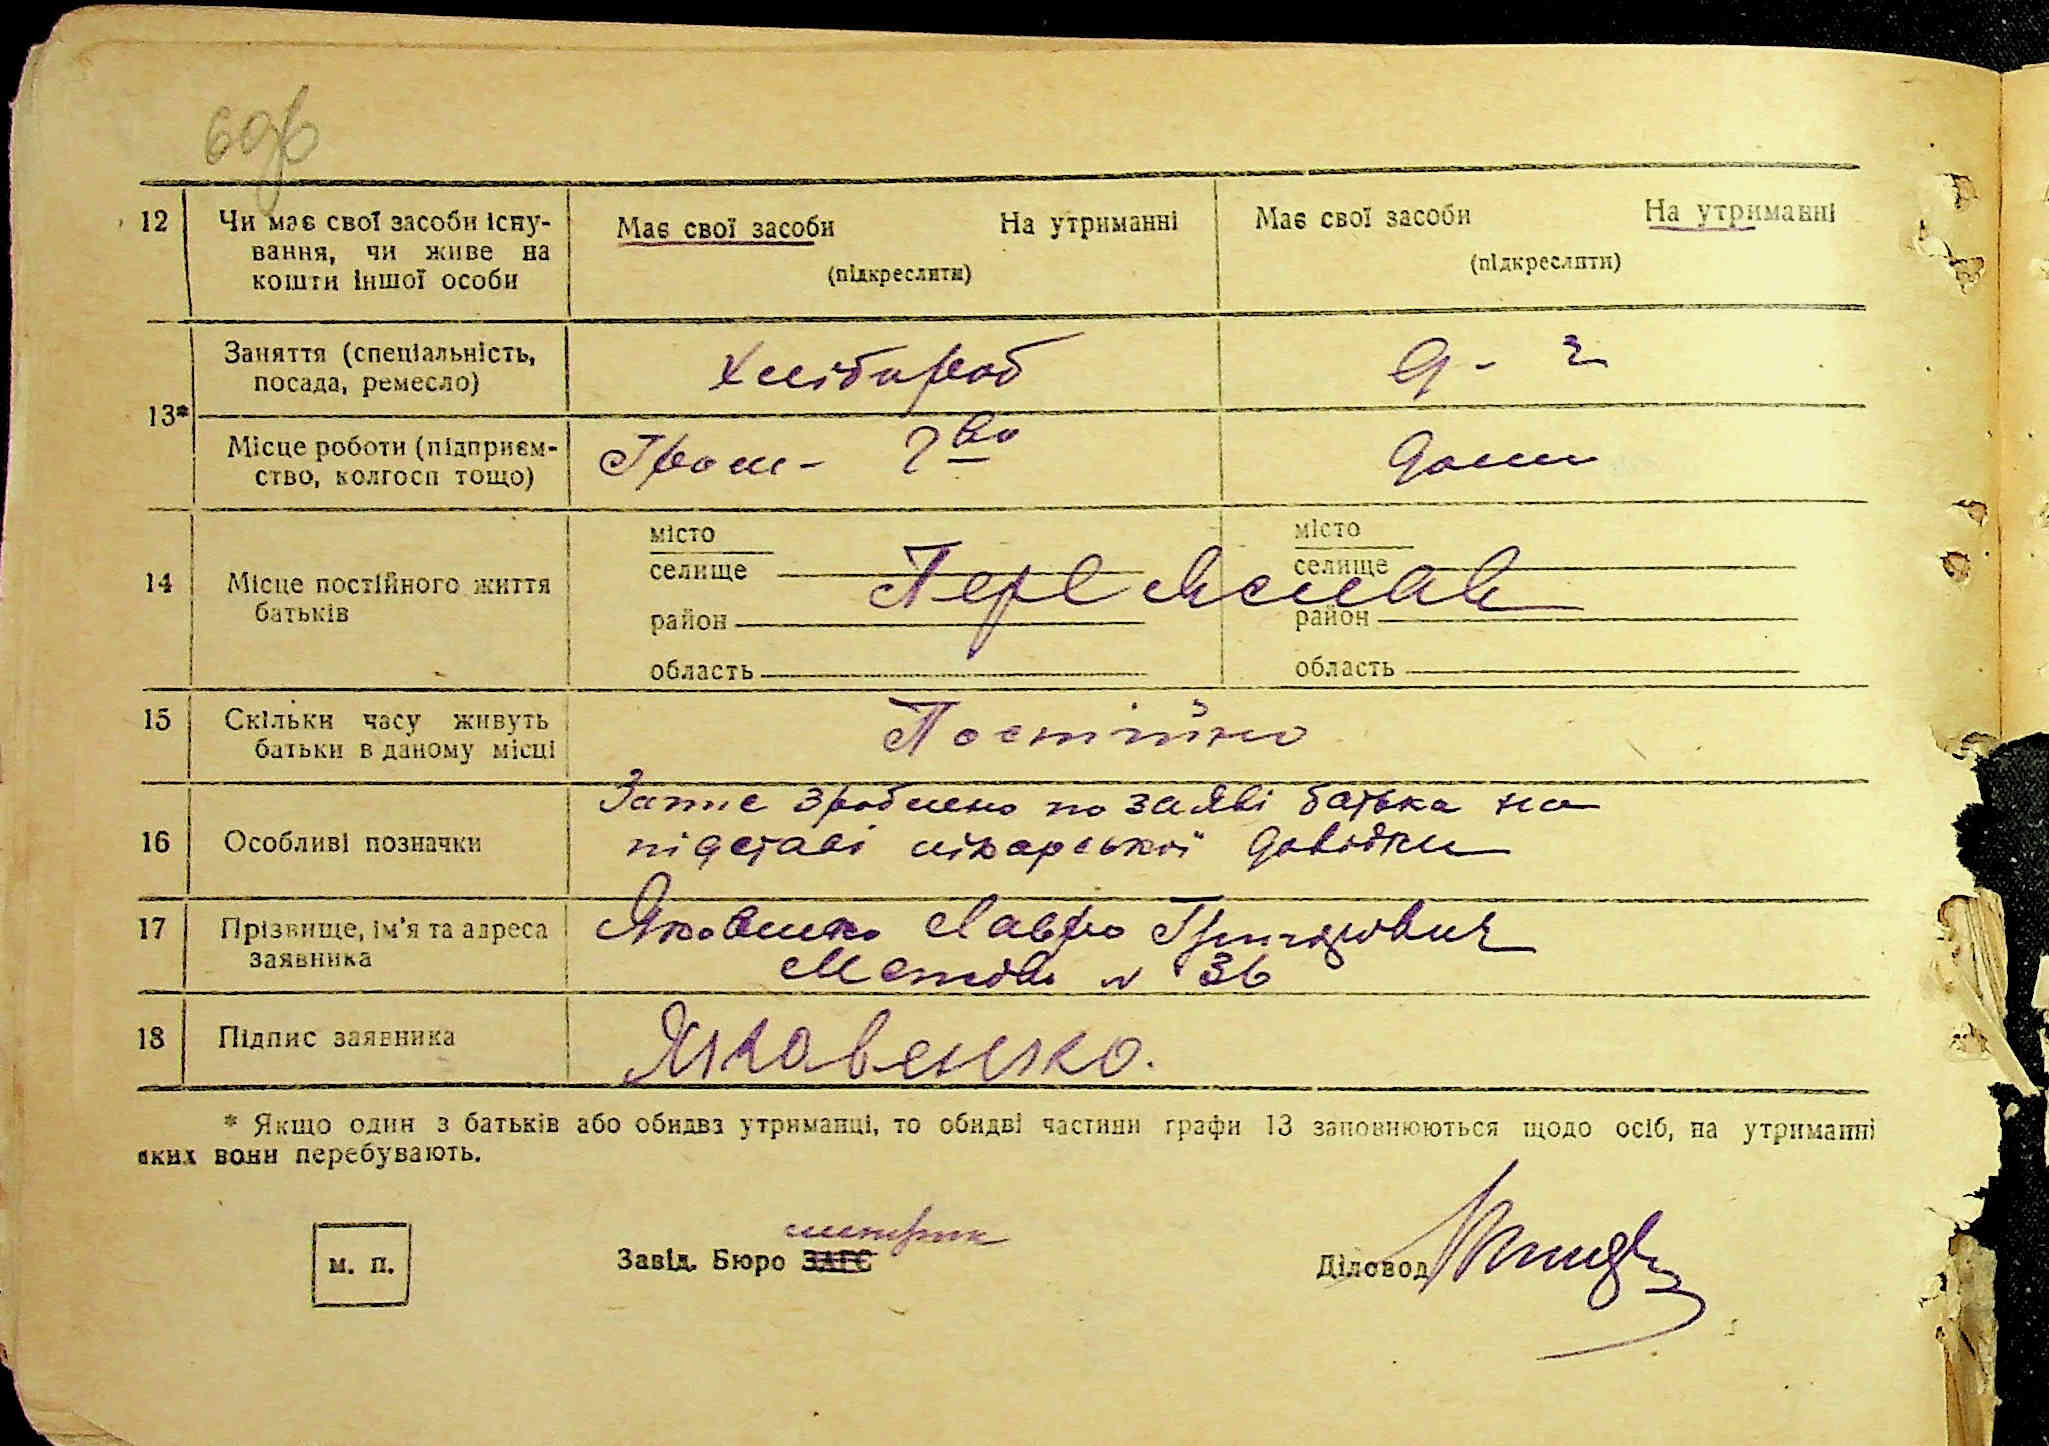 6об
12 Чи має свої засоби існу-
вання, чи живе на
кошти іншої особи
Має свої засоби На утриманні
(підкреслити)
Має свої засоби На утриманні
(підкреслити)
13*
Заняття (спеціальність,
посада, ремесло)
Хлібороб
д - г
Місце роботи (підприєм-
ство, колгосп тощо)
Гром - г во
дома
14 Місце постійного життя
батьків
місто
селище
район
область
місто
селище
район
область
Переяслав
15 Скільки часу живуть
батьки в даному місці
Постійно
16 Особливі позначки
Запис зроблено по заяві батька на
підставі лікарської довідки
17 Прізвище, ім'я та адреса
заявника
Яковенко Лавро Григорович
№ 36
18 Підпис заявника
Яковенко.
* Якщо один з батьків або обидва утриманці, то обидві частини графи 13 заповнюються щодо осіб, на утриманні
яких вони перебувають.
м. п.
Завід. Бюро ЗАГС
метрик
Діловод